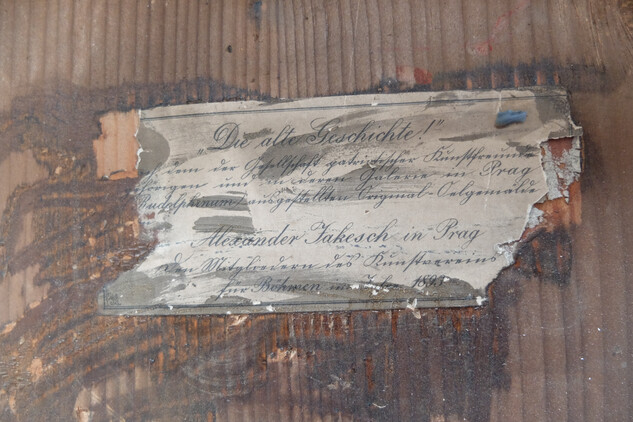 „Die alte Geschichte!"
dem der Gesellschaft patriotischer Kunstfreunde
und in deren Galerie in Prag
Rudolphinum ausgestellten Original-Oelgemälde
Alexander Jakesch in Prag
Den Mitgliedern des Kunstvereins
für Böhmen im Jahre 1893